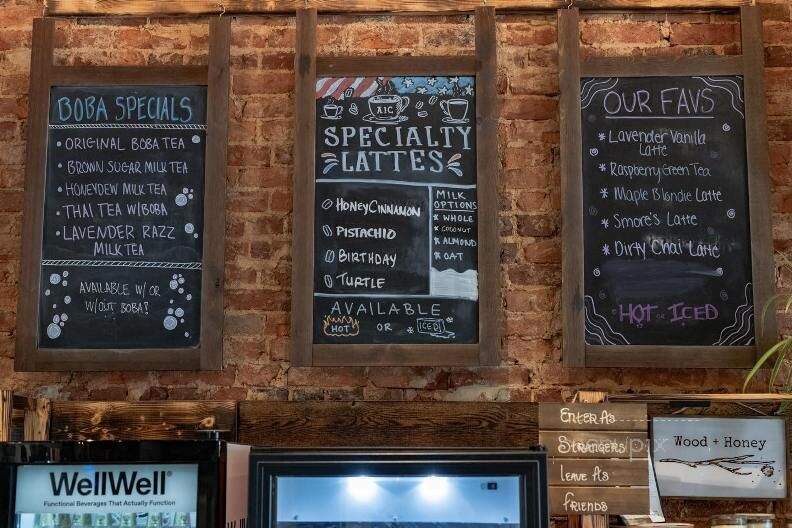 BOBA SPECIALS
• ORIGINAL BOBA TEA
• BROWN SUGAR MILK TEA
• HONEYDEW MILK TEA
• THAI TEA W/BOBA
• LAVENDER RAZZ
MILK TEA
AVAILABLE W/ OR
W/OUT BOBA!
SPECIALTY
LATTES
HONEY CINNAMON
PISTACHIO
BIRTHDAY
TURTLE
MILK
OPTIONS
* WHOLE
* COCONUT
* ALMOND
* OAT
AVAILABLE
HOT OR ICED
OUR FAVS
* Lavender Vanilla
Latte
* Raspberry Green Tea
* Maple Blondie Latte
* Smore's Latte
* Dirty Chai Latte
HOT or ICED
ENTER AS
STRANGERS
LEAVE AS
friends
Wood + Honey
WellWell®
Functional Beverages That Actually Function